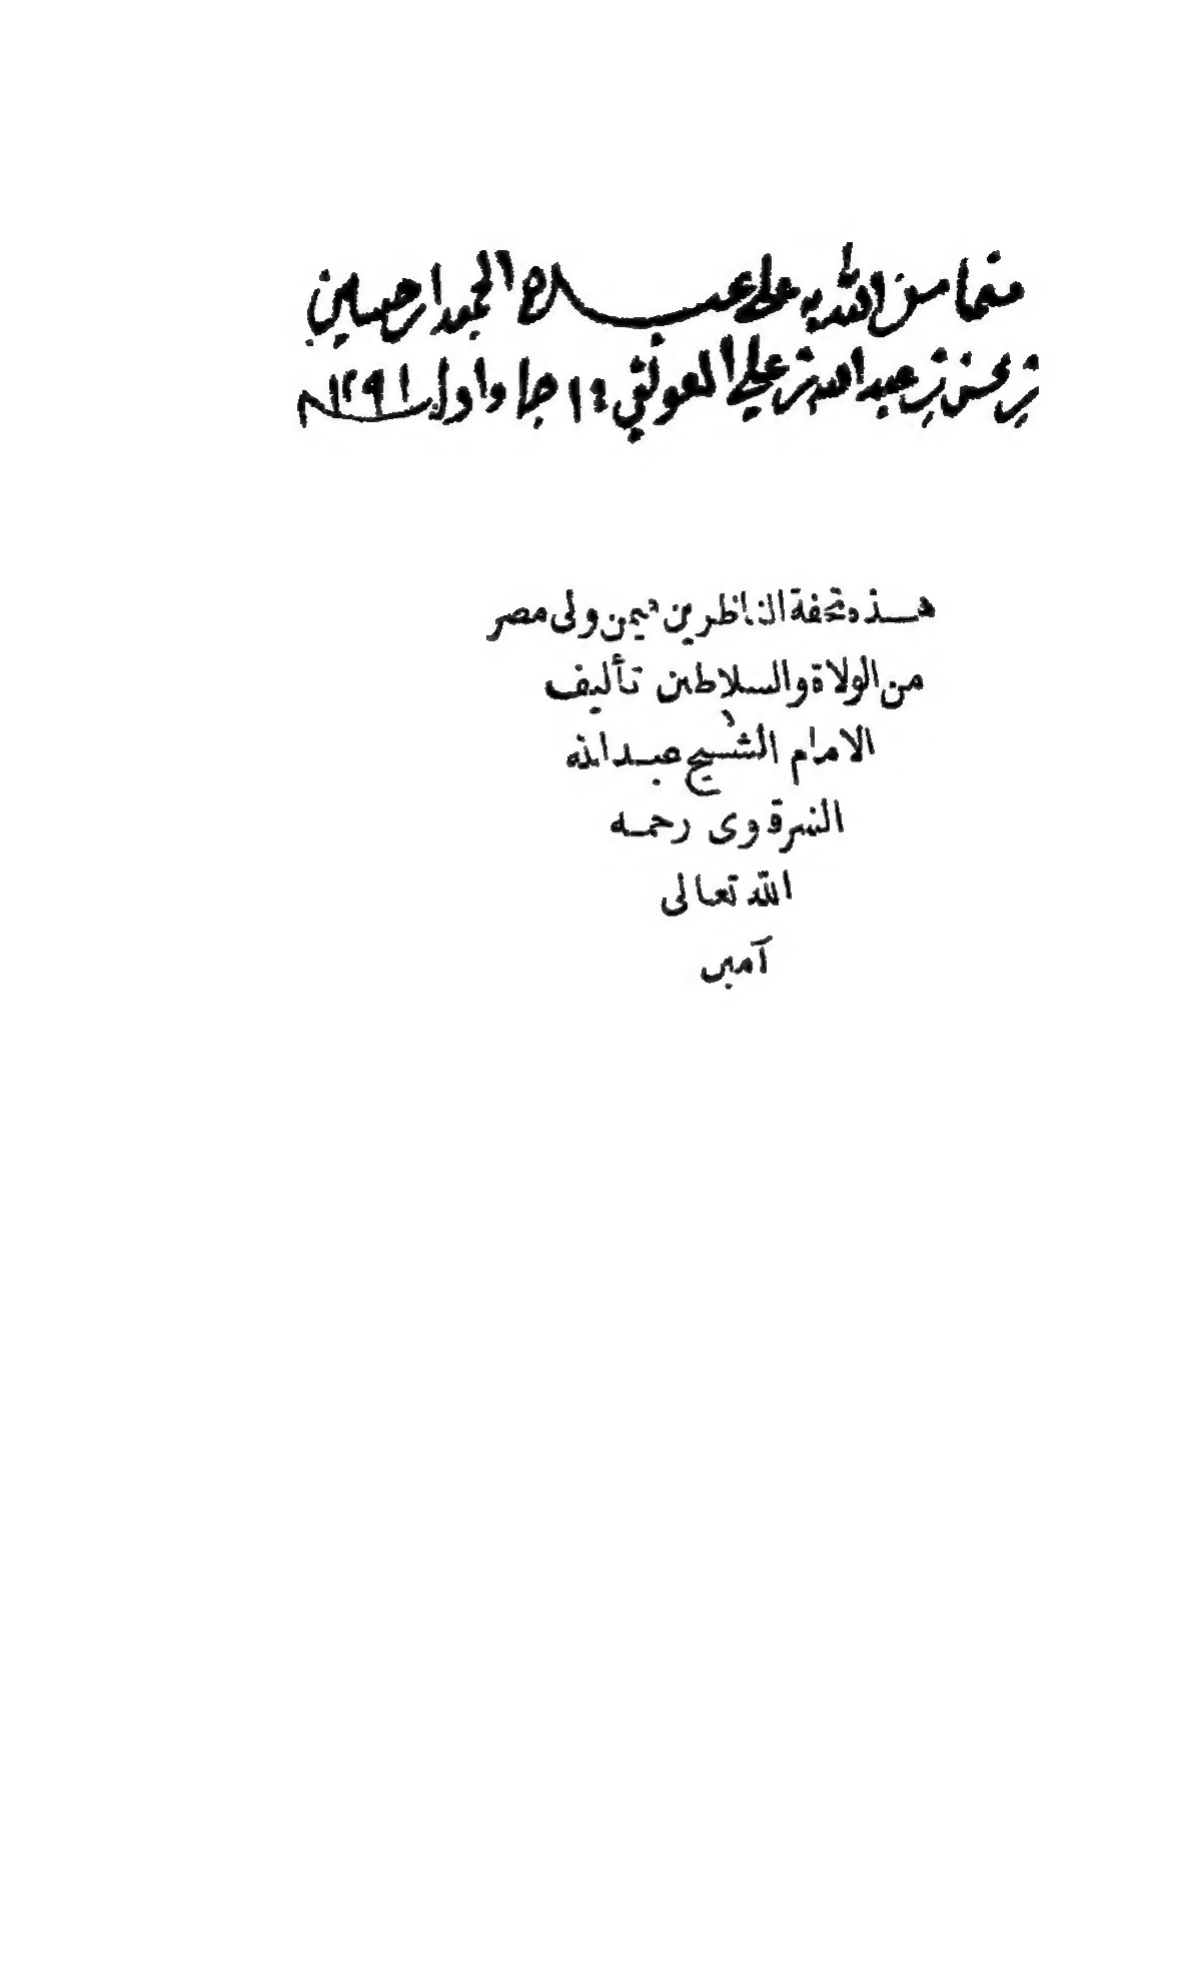 مما من الله به على عبده الجمعدار حسين
بن محسن بن عبدالله بن علي العولقي ١٤ جما واول سنة ١٢٩١
هذه تحفة الناظرين فيمن ولى مصر
من الولاة والسلاطين تأليف
الامام الشيخ عبدالله
الشرقوى رحمه
الله تعالى
آمين